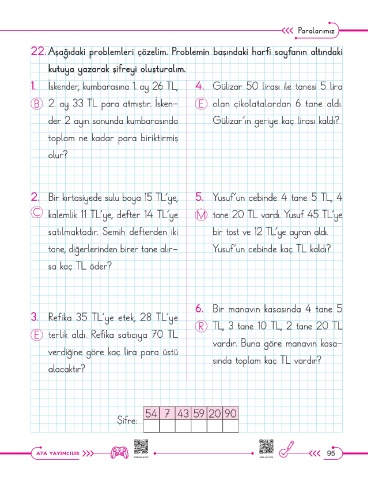 Paralarımız
22. Aşağıdaki problemleri çözelim. Problemin başındaki harfi sayfanın altındaki
kutuya yazarak şifreyi oluşturalım.
1. İskender, kumbarasına 1. ay 26 TL,
B 2. ay 33 TL para atmıştır. İsken-
der 2 ayın sonunda kumbarasında
toplam ne kadar para biriktirmiş
olur?
2. Bir kırtasiyede sulu boya 15 TL'ye,
C kalemlik 11 TL'ye, defter 14 TL'ye
satılmaktadır. Semih defterden iki
tane, diğerlerinden birer tane alır-
sa kaç TL öder?
3. Refika 35 TL'ye etek, 28 TL'ye
E terlik aldı. Refika satıcıya 70 TL
verdiğine göre kaç lira para üstü
alacaktır?
4. Gülizar 50 lirası ile tanesi 5 lira
E olan çikolatalardan 6 tane aldı.
Gülizar'ın geriye kaç lirası kaldı?
5. Yusuf'un cebinde 4 tane 5 TL, 4
M tane 20 TL vardı. Yusuf 45 TL'ye
bir tost ve 12 TL'ye ayran aldı.
Yusuf'un cebinde kaç TL kaldı?
6. Bir manavın kasasında 4 tane 5
R TL, 3 tane 10 TL, 2 tane 20 TL
vardır. Buna göre manavın kasa-
sında toplam kaç TL vardır?
54 7 43 59 20 90
Şifre:
ATA YAYINCILIK
95